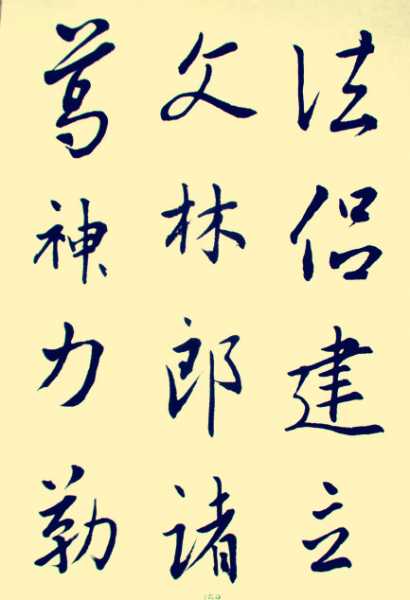 法侣建立
文林郎诸
葛神力勒
159